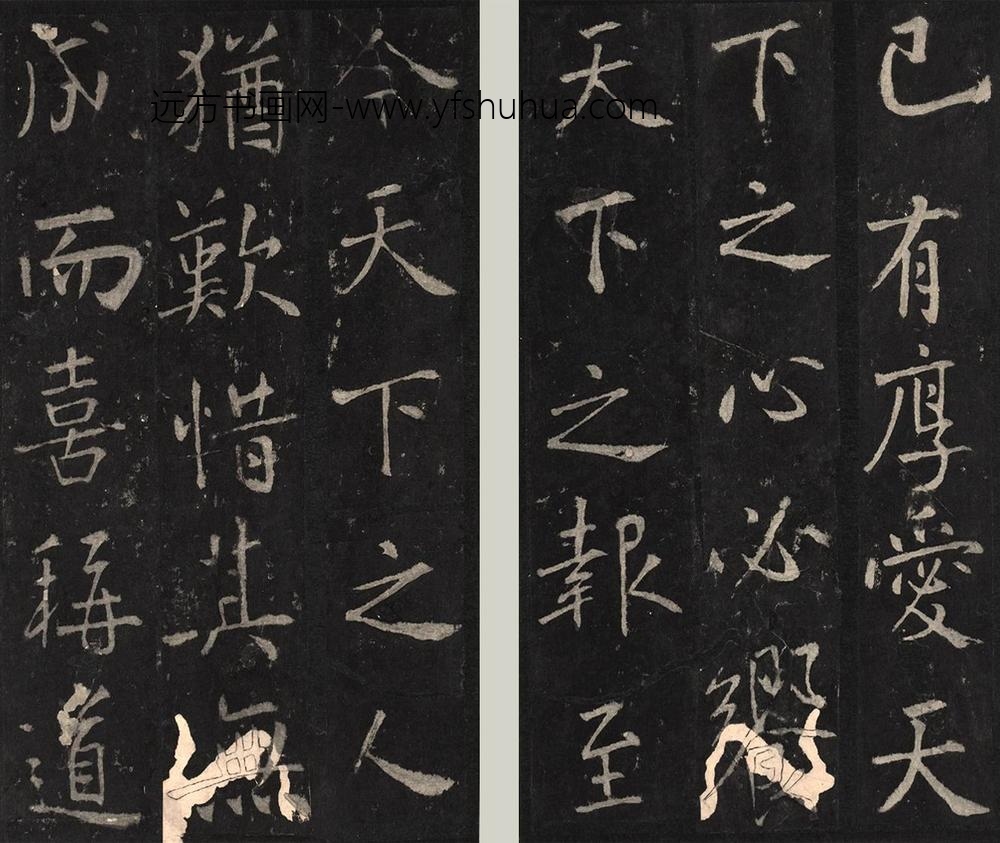 已有厚愛天
下之心必饗
天下之報至
今天下之人
猶歎惜其無
成而喜稱道
远方书画网-www.yfshuhua.com